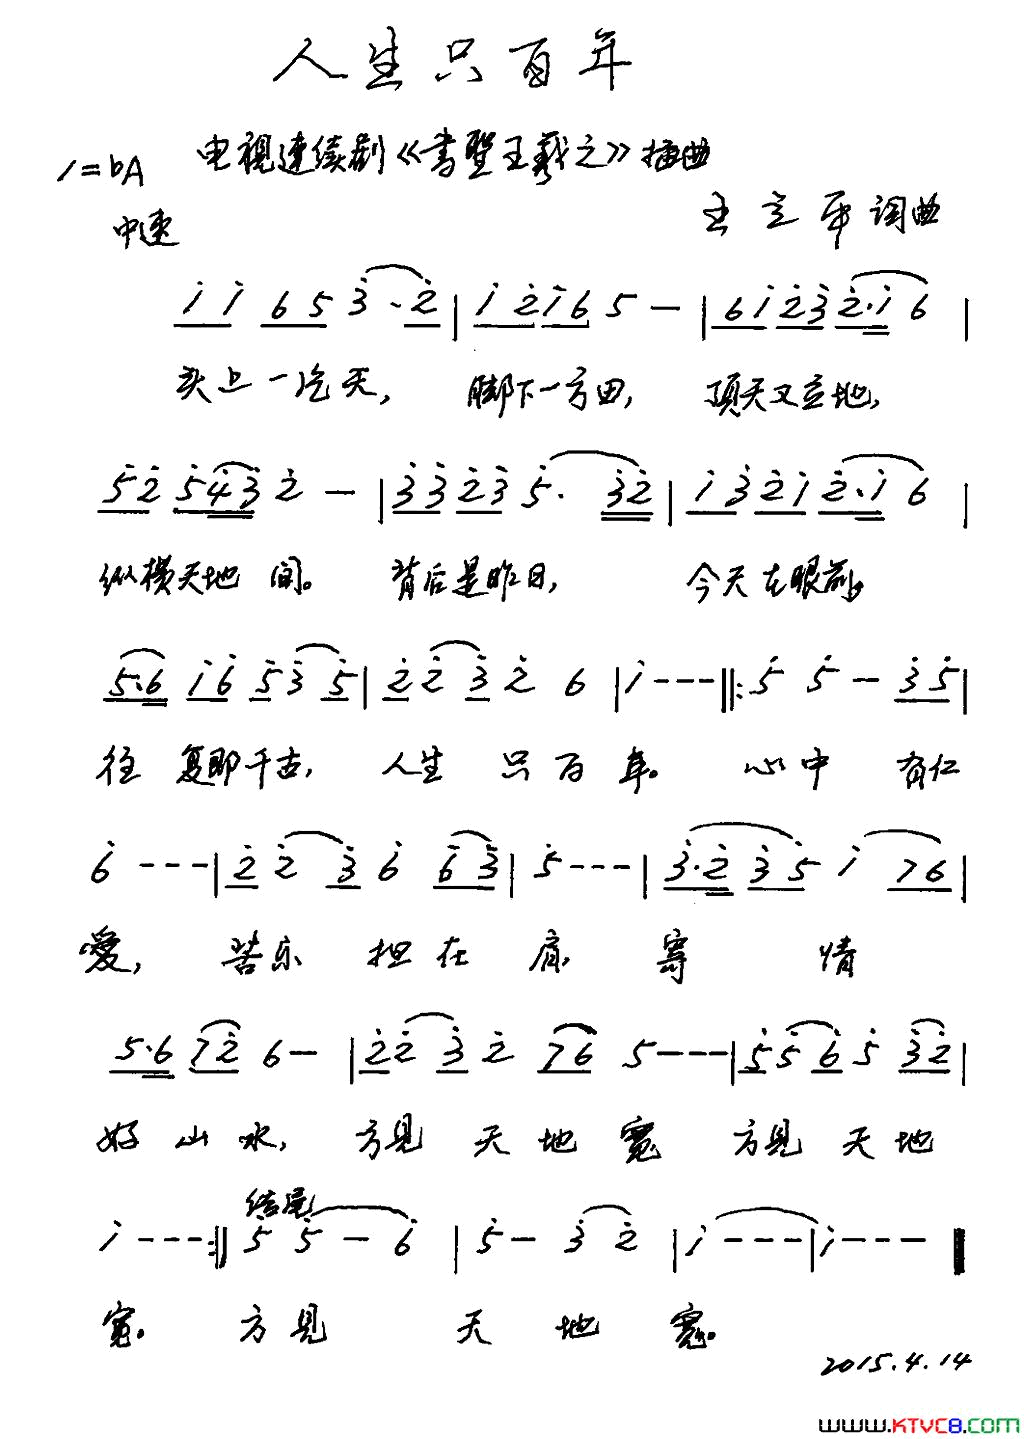 人生只百年
电视连续剧《书圣王羲之》插曲
1=bA
中速
王立平 词曲
i i 6 5 3 · 2 | i 2 i 6 5 — | 6 i 2 3 2 · i 6 |
头上一片天, 脚下一方田, 顶天又立地,
5 2 5 4 3 2 — | 3 3 2 3 5 · 3 2 | i 3 2 i 2 · i 6 |
纵横天地间。 背后是昨日, 今天在眼前。
5 · 6 i 6 5 3 5 | 2 2 3 2 6 | i - - - ‖: 5 5 — 3 5 |
往复即千古, 人生只百年。 心中有仁
6 - - - | 2 2 3 6 6 3 | 5 - - - | 3 · 2 3 5 i 7 6 |
爱, 苦乐担在肩, 寄情
5 · 6 7 2 6 — | 2 2 3 2 7 6 5 - - - | 5 5 6 5 3 2 |
好山水, 方见天地宽 方见天地
结尾
i - - - :‖ 5 5 — 6 | 5 — 3 2 | i - - - | i - - - ‖
宽。 方见天地宽。
2015.4.14
WWW.KTVC8.COM